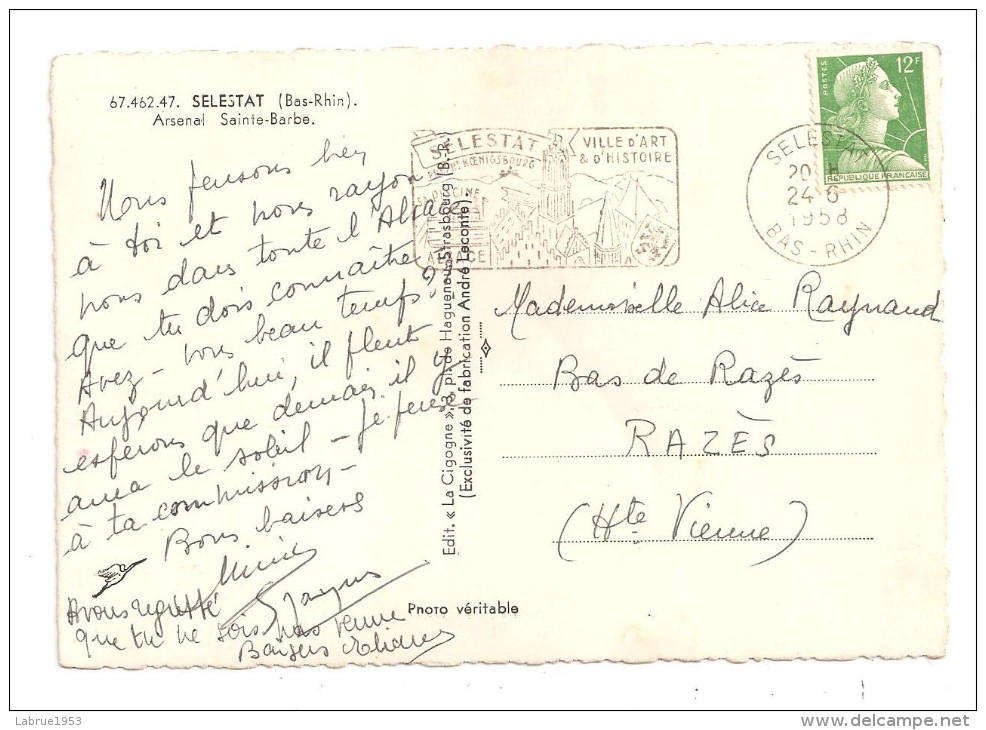 67.462.47. SELESTAT (Bas-Rhin).
Arsenal Sainte-Barbe.
Nous pensons bien
à toi et nous rayon
nons dans toute l'Alsace
que tu dois connaître
Avez-vous beau temps?
Aujourd'hui, il pleut
espérons que demain il y
aura le soleil - Je pense
à ta commission -
Bons baisers
Mimi
Jacques
Avons regretté
que tu ne sois pas venue
Baisers Eliane
Edit. « La Cigogne ». 3, pl. de Haguenau, Strasbourg (B.-R.)
(Exclusivité de fabrication André Leconte).
Photo véritable
SELESTAT
HT KŒNIGSBOURG
PISCINE
ALSACE
VILLE D'ART
& D'HISTOIRE
SELESTAT
20 H
24-6
1958
BAS-RHIN
POSTES
12F
REPUBLIQUE FRANÇAISE
Mademoiselle Alice Raynaud
Bas de Razès
RAZÈS
(Hte Vienne)
Labrue1953
delcampe.net